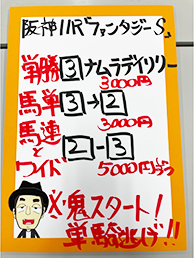 阪神11R『ファンタジーS』
単勝 3 ナムラデイリリー
3000円
馬単 3→2
3000円
馬連とワイド 2-3
5000円ずつ
※鬼スタート!
単騎逃げ!!